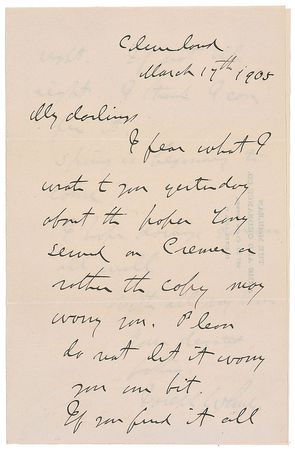 Cleveland
March 17th 1905
My darling
I fear what I
wrote to you yesterday
about the paper Tony
served on Cremer or
rather the copy may
worry you. Please
do not let it worry
you one bit.
If you find it all